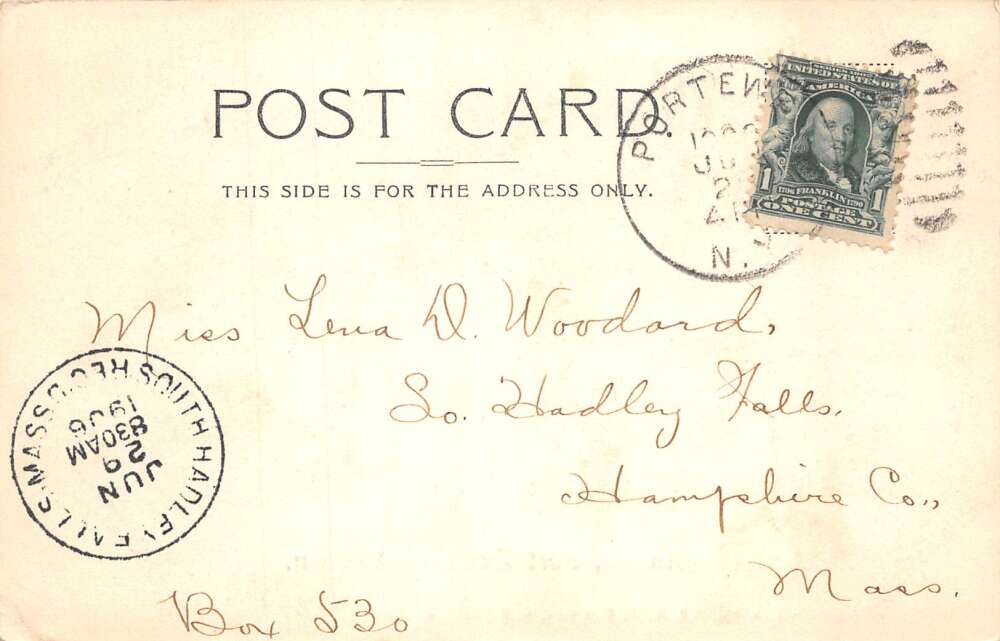 POST CARD.
THIS SIDE IS FOR THE ADDRESS ONLY.
UNITED STATES OF
AMERICA
1706 FRANKLIN 1790
POSTAGE
1 ONE CENT 1
N.Y.
Miss Lena D. Woodard,
So. Hadley Falls.
Hampshire Co.,
Mass.
Box 530
SOUTH HADLEY FALLS, MASS. REC'D.
JUN
29
830AM
1906